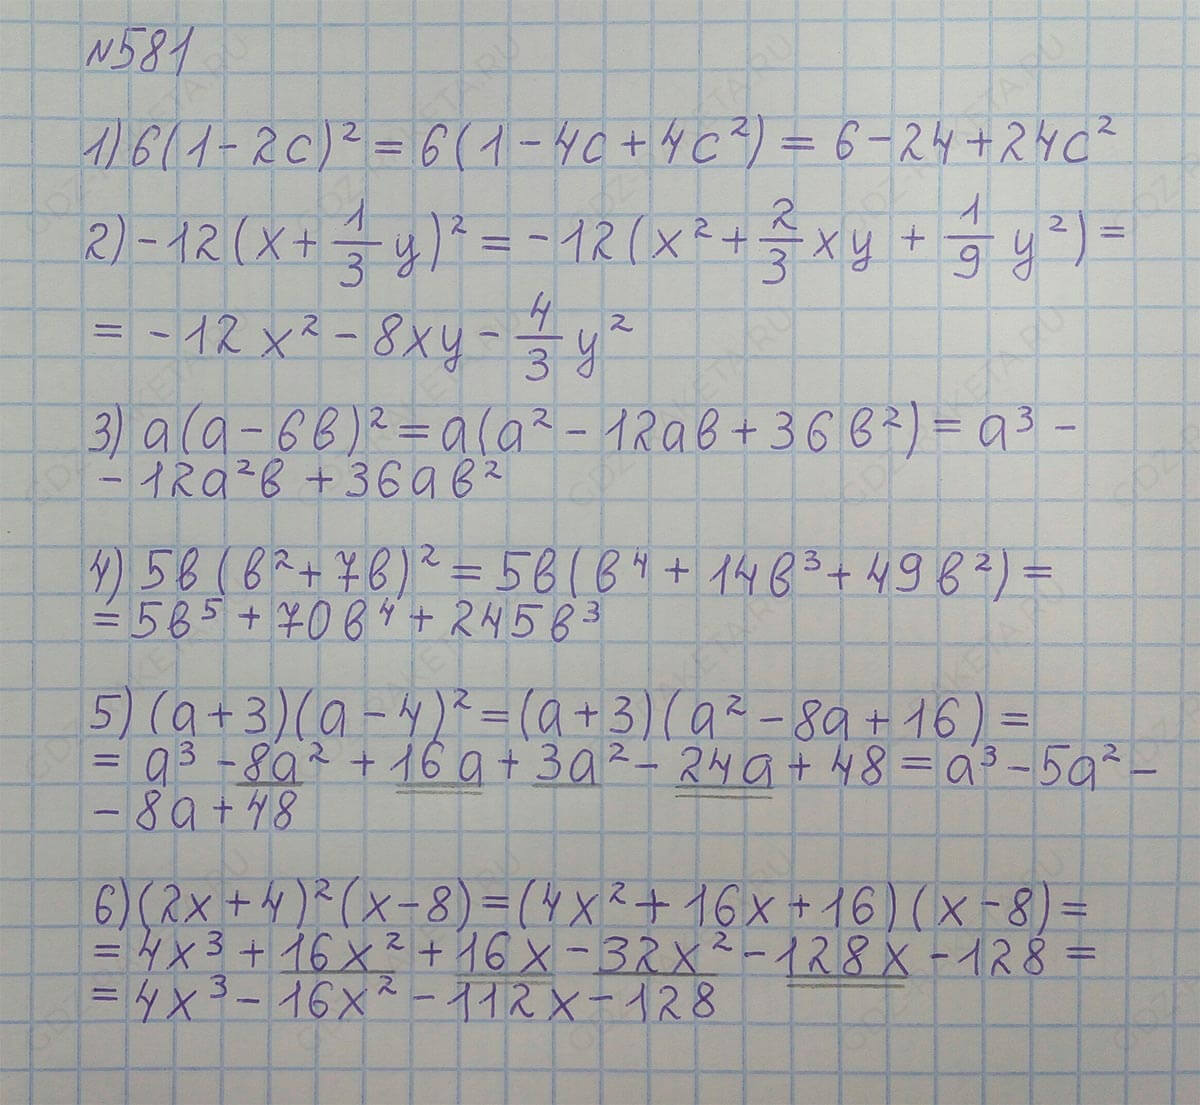 №581
1) 6(1-2c)² = 6(1-4c+4c²) = 6-24+24c²
2) -12(x+1/3 y)² = -12(x²+2/3 xy + 1/9 y²) =
= -12x² - 8xy - 4/3 y²
3) a(a-6в)² = a(a²-12aв+36в²) = a³ -
- 12a²в + 36aв²
4) 5в(в²+7в)² = 5в(в⁴+14в³+49в²) =
= 5в⁵ + 70в⁴ + 245в³
5) (a+3)(a-4)² = (a+3)(a²-8a+16) =
= a³ - 8a² + 16a + 3a² - 24a + 48 = a³ - 5a² -
- 8a + 48
6) (2x+4)²(x-8) = (4x²+16x+16)(x-8) =
= 4x³ + 16x² + 16x - 32x² - 128x - 128 =
= 4x³ - 16x² - 112x - 128